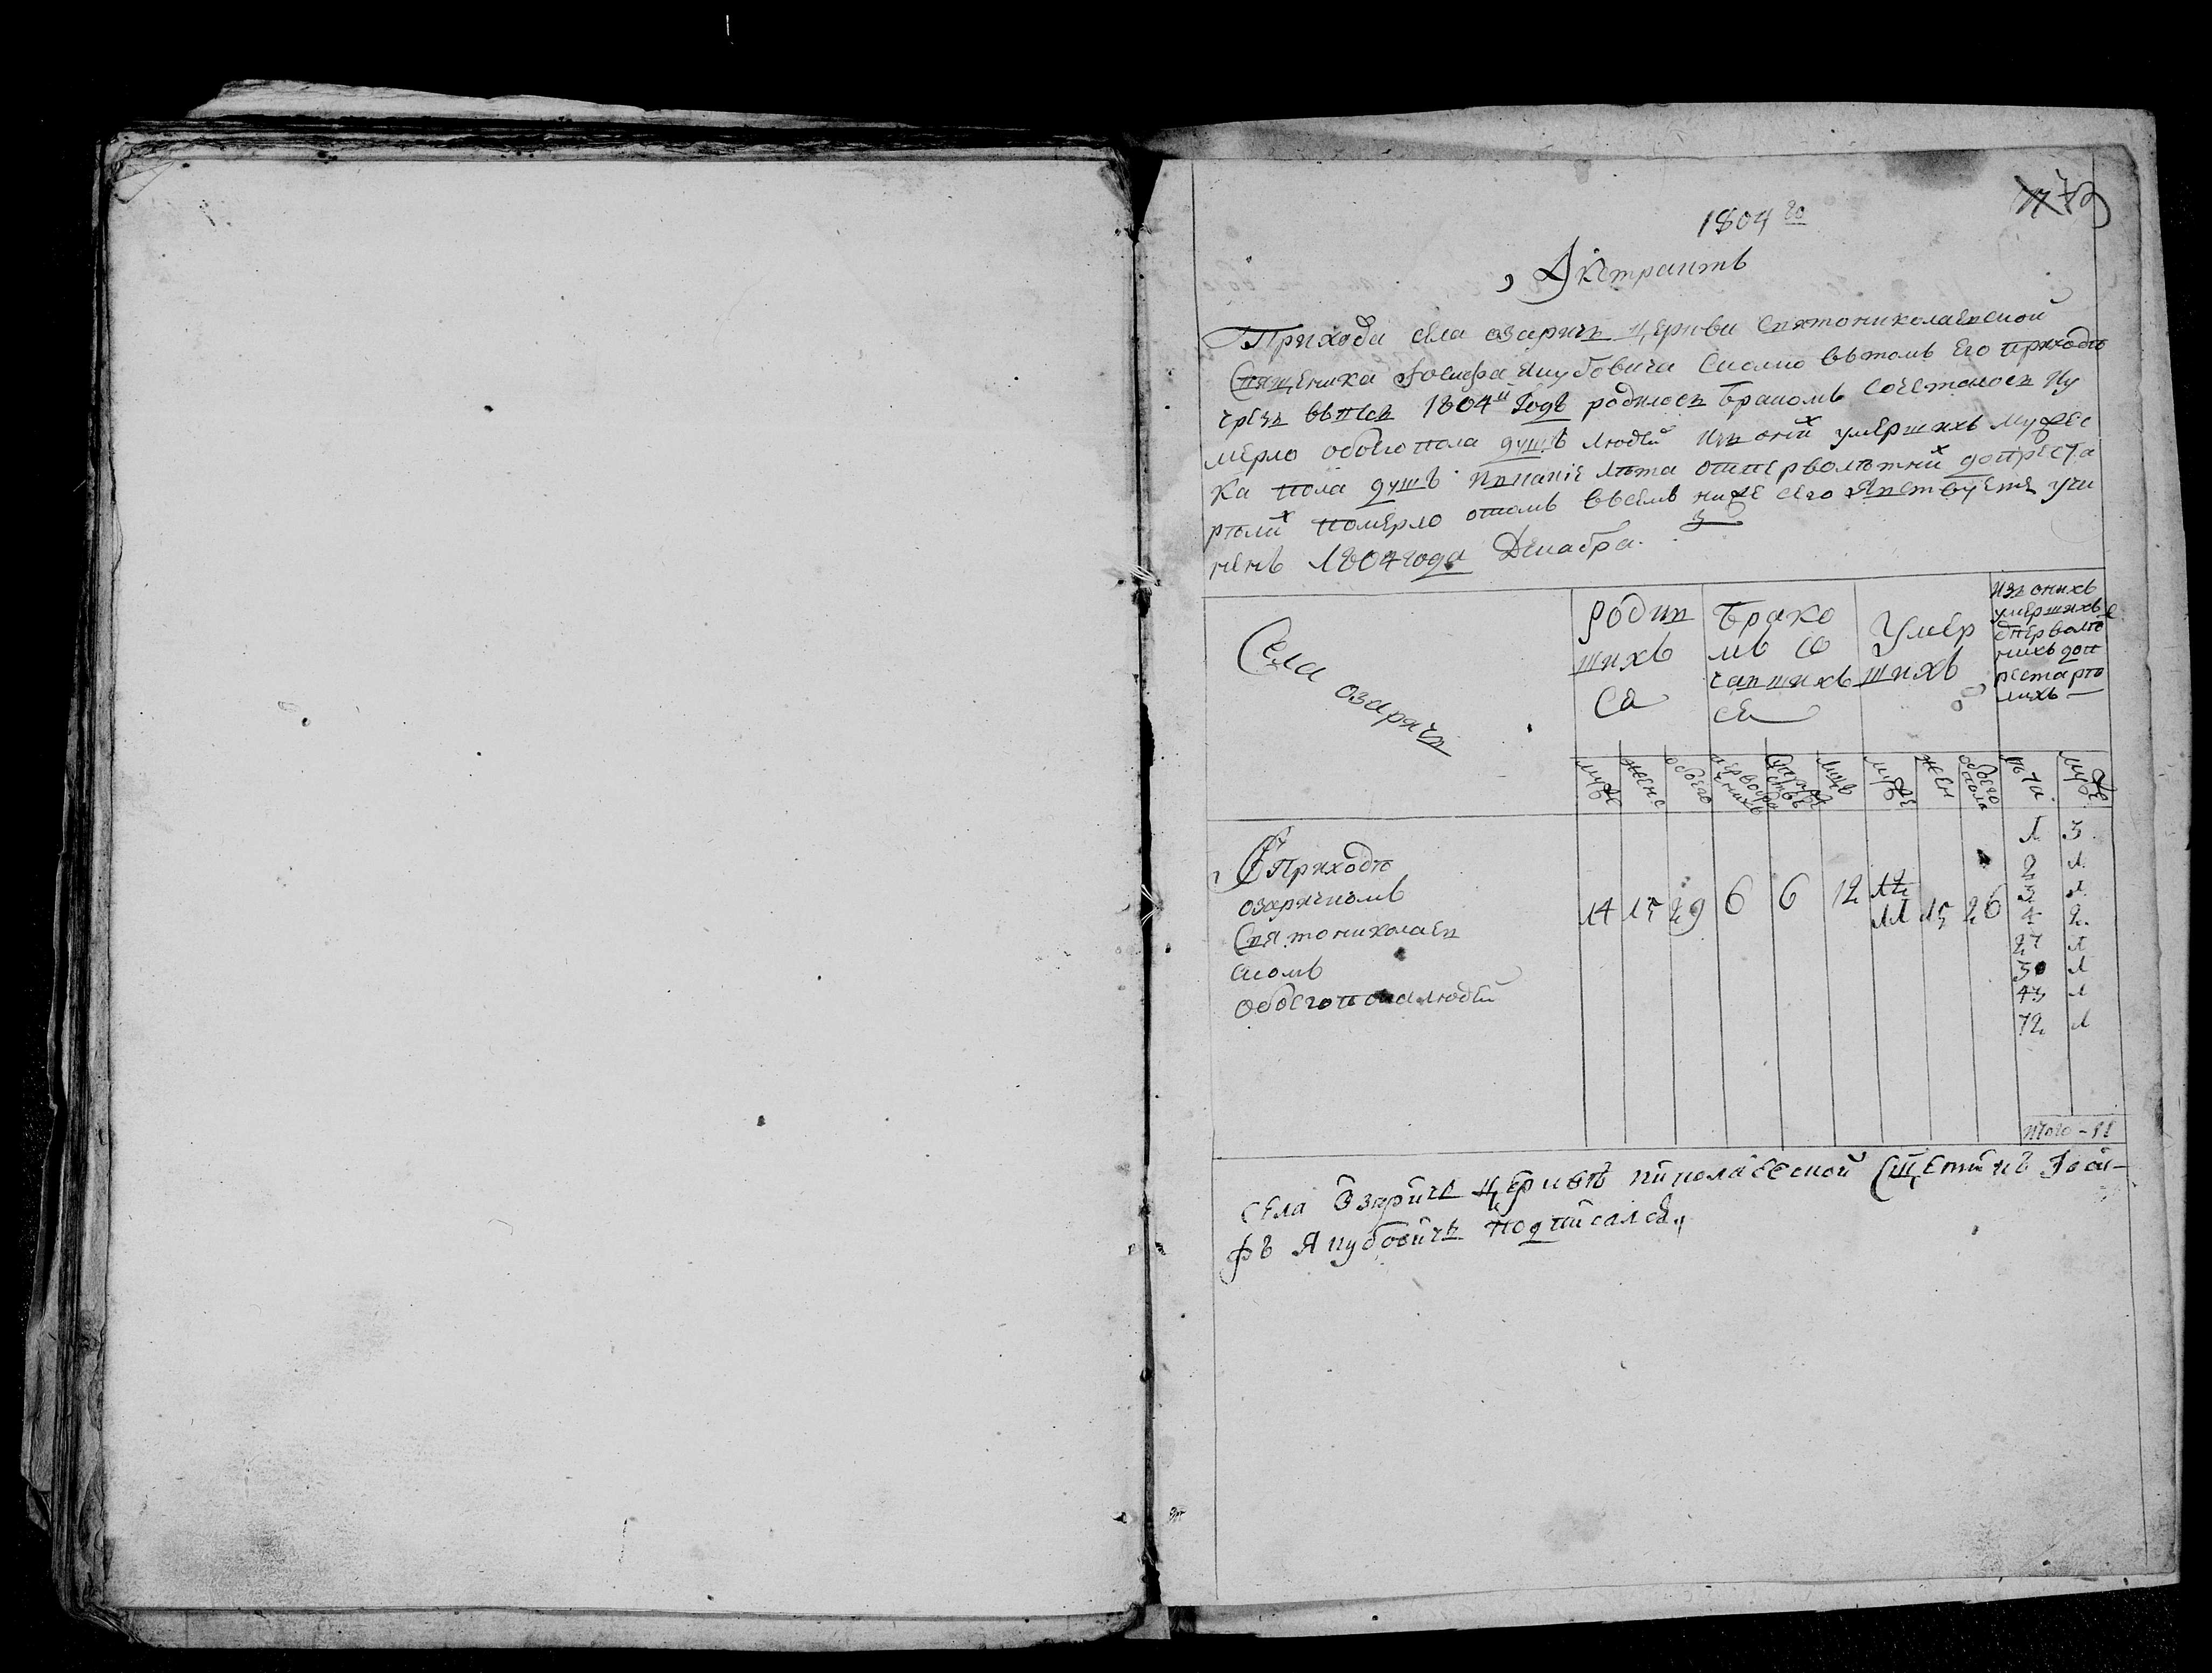 1804го
Экстрактъ
Прихода села озаричъ церкви Святониколаевской
Священика Иосифа Якубовича Сколко вътомъ Его приходѣ
чрезъ въвесь 1804й Годъ родилось Бракомъ Сочеталось Иу
мерло обоегопола душъ людей Изъ оних умершихъ мужес
ка пола душъ Икакіе лѣта отперволѣтних допреста
рѣлих померло отомъ Всемъ ниже сего Явствуетъ учи
ненъ 1804года Декабра.
Села озаричъ
родив
шихъ
са
Брако
мъ со
чавшихъ
са
Умер
шихъ
Изъ онихъ
умершихъ
отперволѣ
нихъ доп
рестарѣ
лихъ
муже
женс
обоего
муже
жен
обоего
пола
лѣта
муже
1 3
2 1
3 1
4 2
27 1
30 1
43 1
72 1
Приходѣ
озаричкомъ
Святониколаев
скомъ
Обоегопола людей
14 15 29 6 6 12 12 11 15 26
итого - 11
Села Озаричъ церквѣ николаевской Сщеникъ Иоси-
фъ Якубовичъ подписался